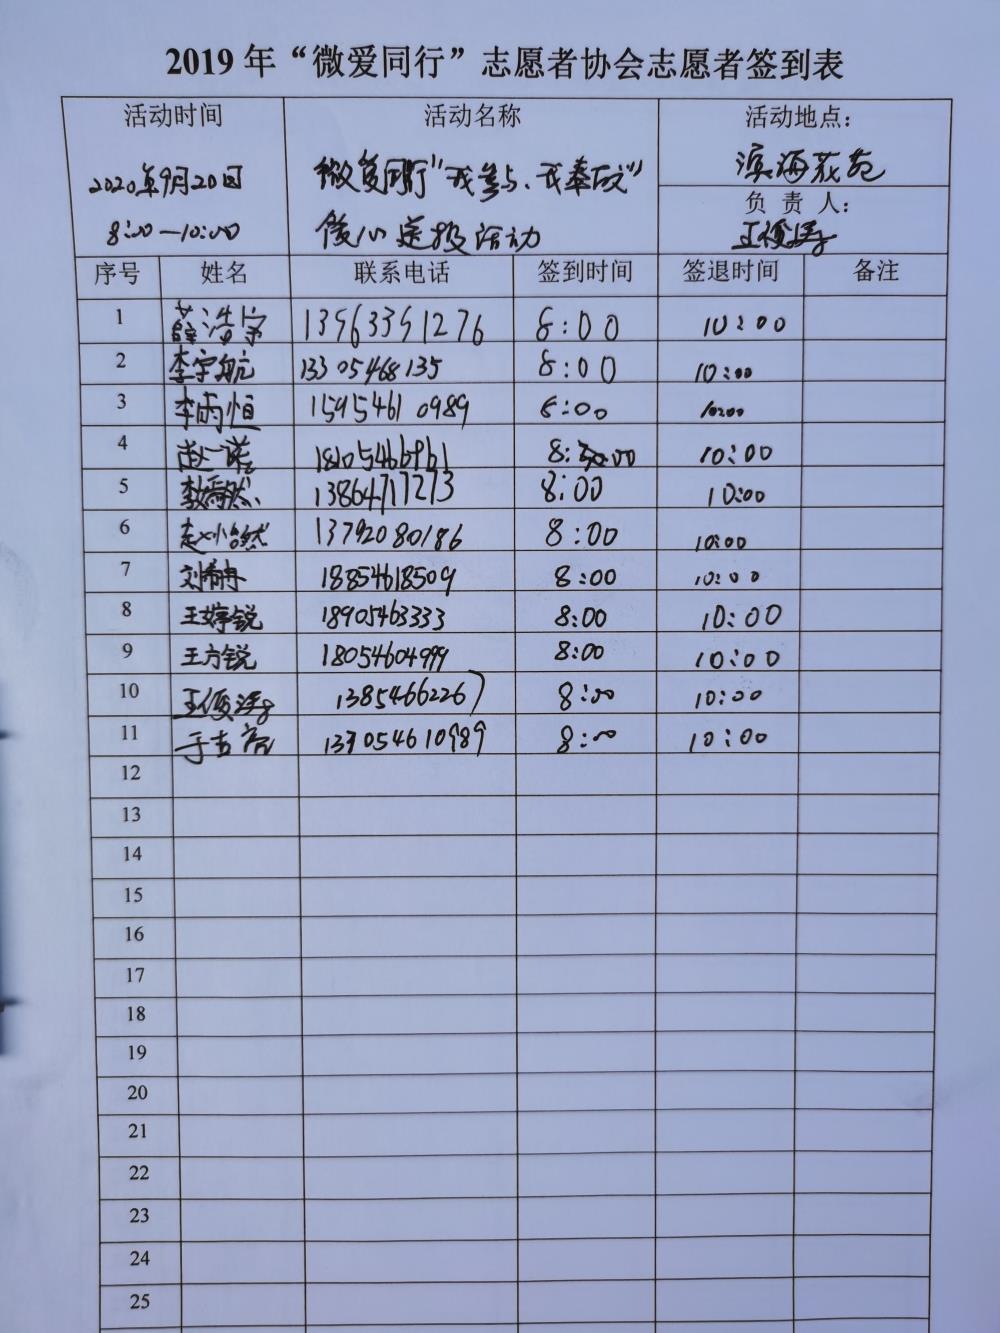 2019 年“微爱同行”志愿者协会志愿者签到表
活动时间 活动名称 活动地点：
2020年9月20日 微爱同行"我参与、我奉献" 滨海花苑
8:00—10:00 爱心送报活动 负 责 人：
王俊涛
序号 姓名 联系电话 签到时间 签退时间 备注
1 薛浩宇 13563351276 8:00 10:00
2 李宇航 13305468135 8:00 10:00
3 李雨恒 15954610989 8:00 10:00
4 赵一诺 8:00 10:00
5 李嫣然 13864717273 8:00 10:00
6 赵怡然 13792080186 8:00 10:00
7 18854618509 8:00 10:00
8 王婷锐 18905463333 8:00 10:00
9 王方锐 18054604999 8:00 10:00
10 王俊涛 13854662267 8:00 10:00
11 137054610989 8:00 10:00
12
13
14
15
16
17
18
19
20
21
22
23
24
25